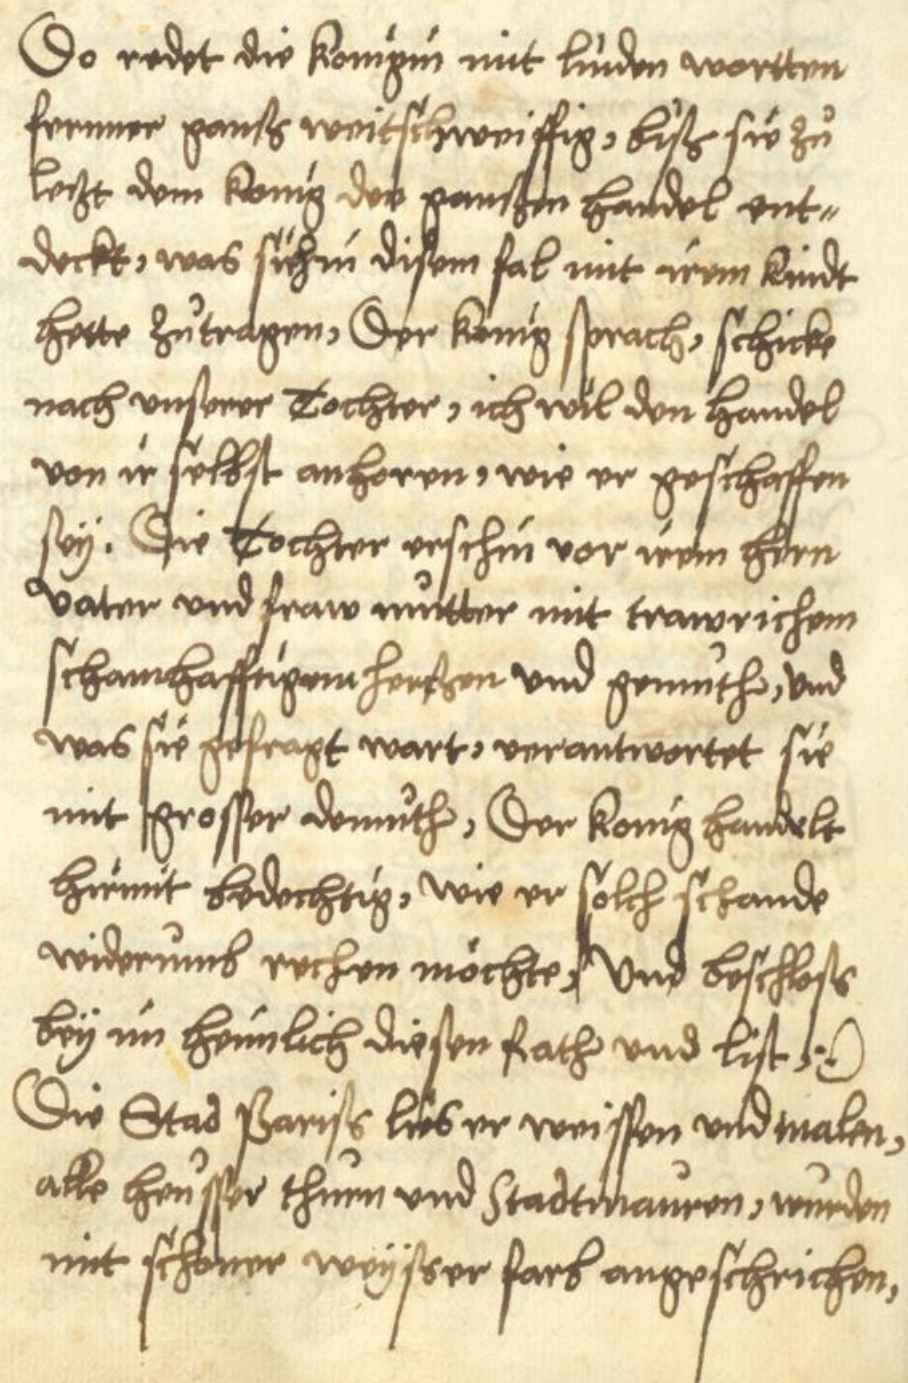 Do redet die Konigin mit linden wortten
fernner gantz weitschweiffig, bisz sie zů
letzt dem Konig den gantzen handel ent-
deckt, was sich in disem fal mit irem Kindt
hette zůtragen, Der Konig sprach, schicke
nach unserer Tochter, ich wil den handel
von ir selbst anhoren, wie er geschaffen
sey. Die Tochter erschin vor irem hern
vater und fraw mutter mit trawrichem
schamhafftigem hertzen und gemuth, und
was sie gefragt wart, verantwortet sie
mit grosser demuth, Der Konig handelt
hirmit bedechtig, wie er solch schande
widerumb rechen möchte, Und beschloss
bey im heimlich diesen Rath und list,
Die Stad Pariss lies er weissen und malen,
alle heusser thurn und Stadtmauren, wurden
mit schoner weysser farb angeschrichen,